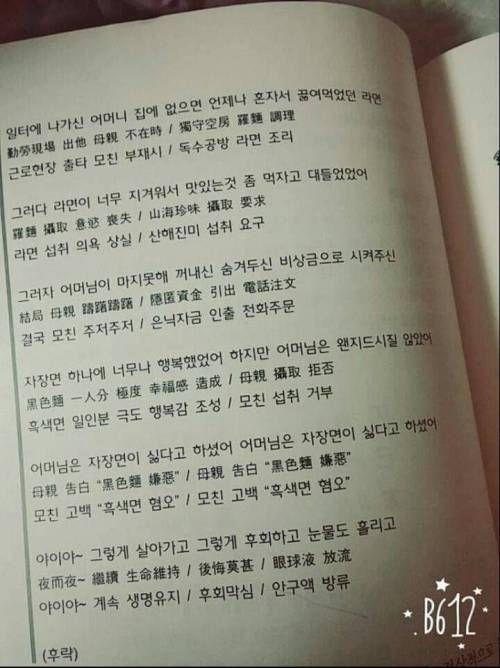 일터에 나가신 어머니 집에 없으면 언제나 혼자서 끓여먹었던 라면
勤勞現場 出他 母親 不在時 / 獨守空房 羅麵 調理
근로현장 출타 모친 부재시 / 독수공방 라면 조리
그러다 라면이 너무 지겨워서 맛있는것 좀 먹자고 대들었었어
羅麵 攝取 意慾 喪失 / 山海珍味 攝取 要求
라면 섭취 의욕 상실 / 산해진미 섭취 요구
그러자 어머님이 마지못해 꺼내신 숨겨두신 비상금으로 시켜주신
結局 母親 躊躇躊躇 / 隱匿資金 引出 電話注文
결국 모친 주저주저 / 은닉자금 인출 전화주문
자장면 하나에 너무나 행복했었어 하지만 어머님은 왠지드시질 않았어
黑色麵 一人分 極度 幸福感 造成 / 母親 攝取 拒否
흑색면 일인분 극도 행복감 조성 / 모친 섭취 거부
어머님은 자장면이 싫다고 하셨어 어머님은 자장면이 싫다고 하셨어
母親 告白 “黑色麵 嫌惡” / 母親 告白 “黑色麵 嫌惡”
모친 고백 “흑색면 혐오” / 모친 고백 “흑색면 혐오”
야이야~ 그렇게 살아가고 그렇게 후회하고 눈물도 흘리고
夜而夜~ 繼續 生命維持 / 後悔莫甚 / 眼球液 放流
야이야~ 계속 생명유지 / 후회막심 / 안구액 방류
(후략)
B612